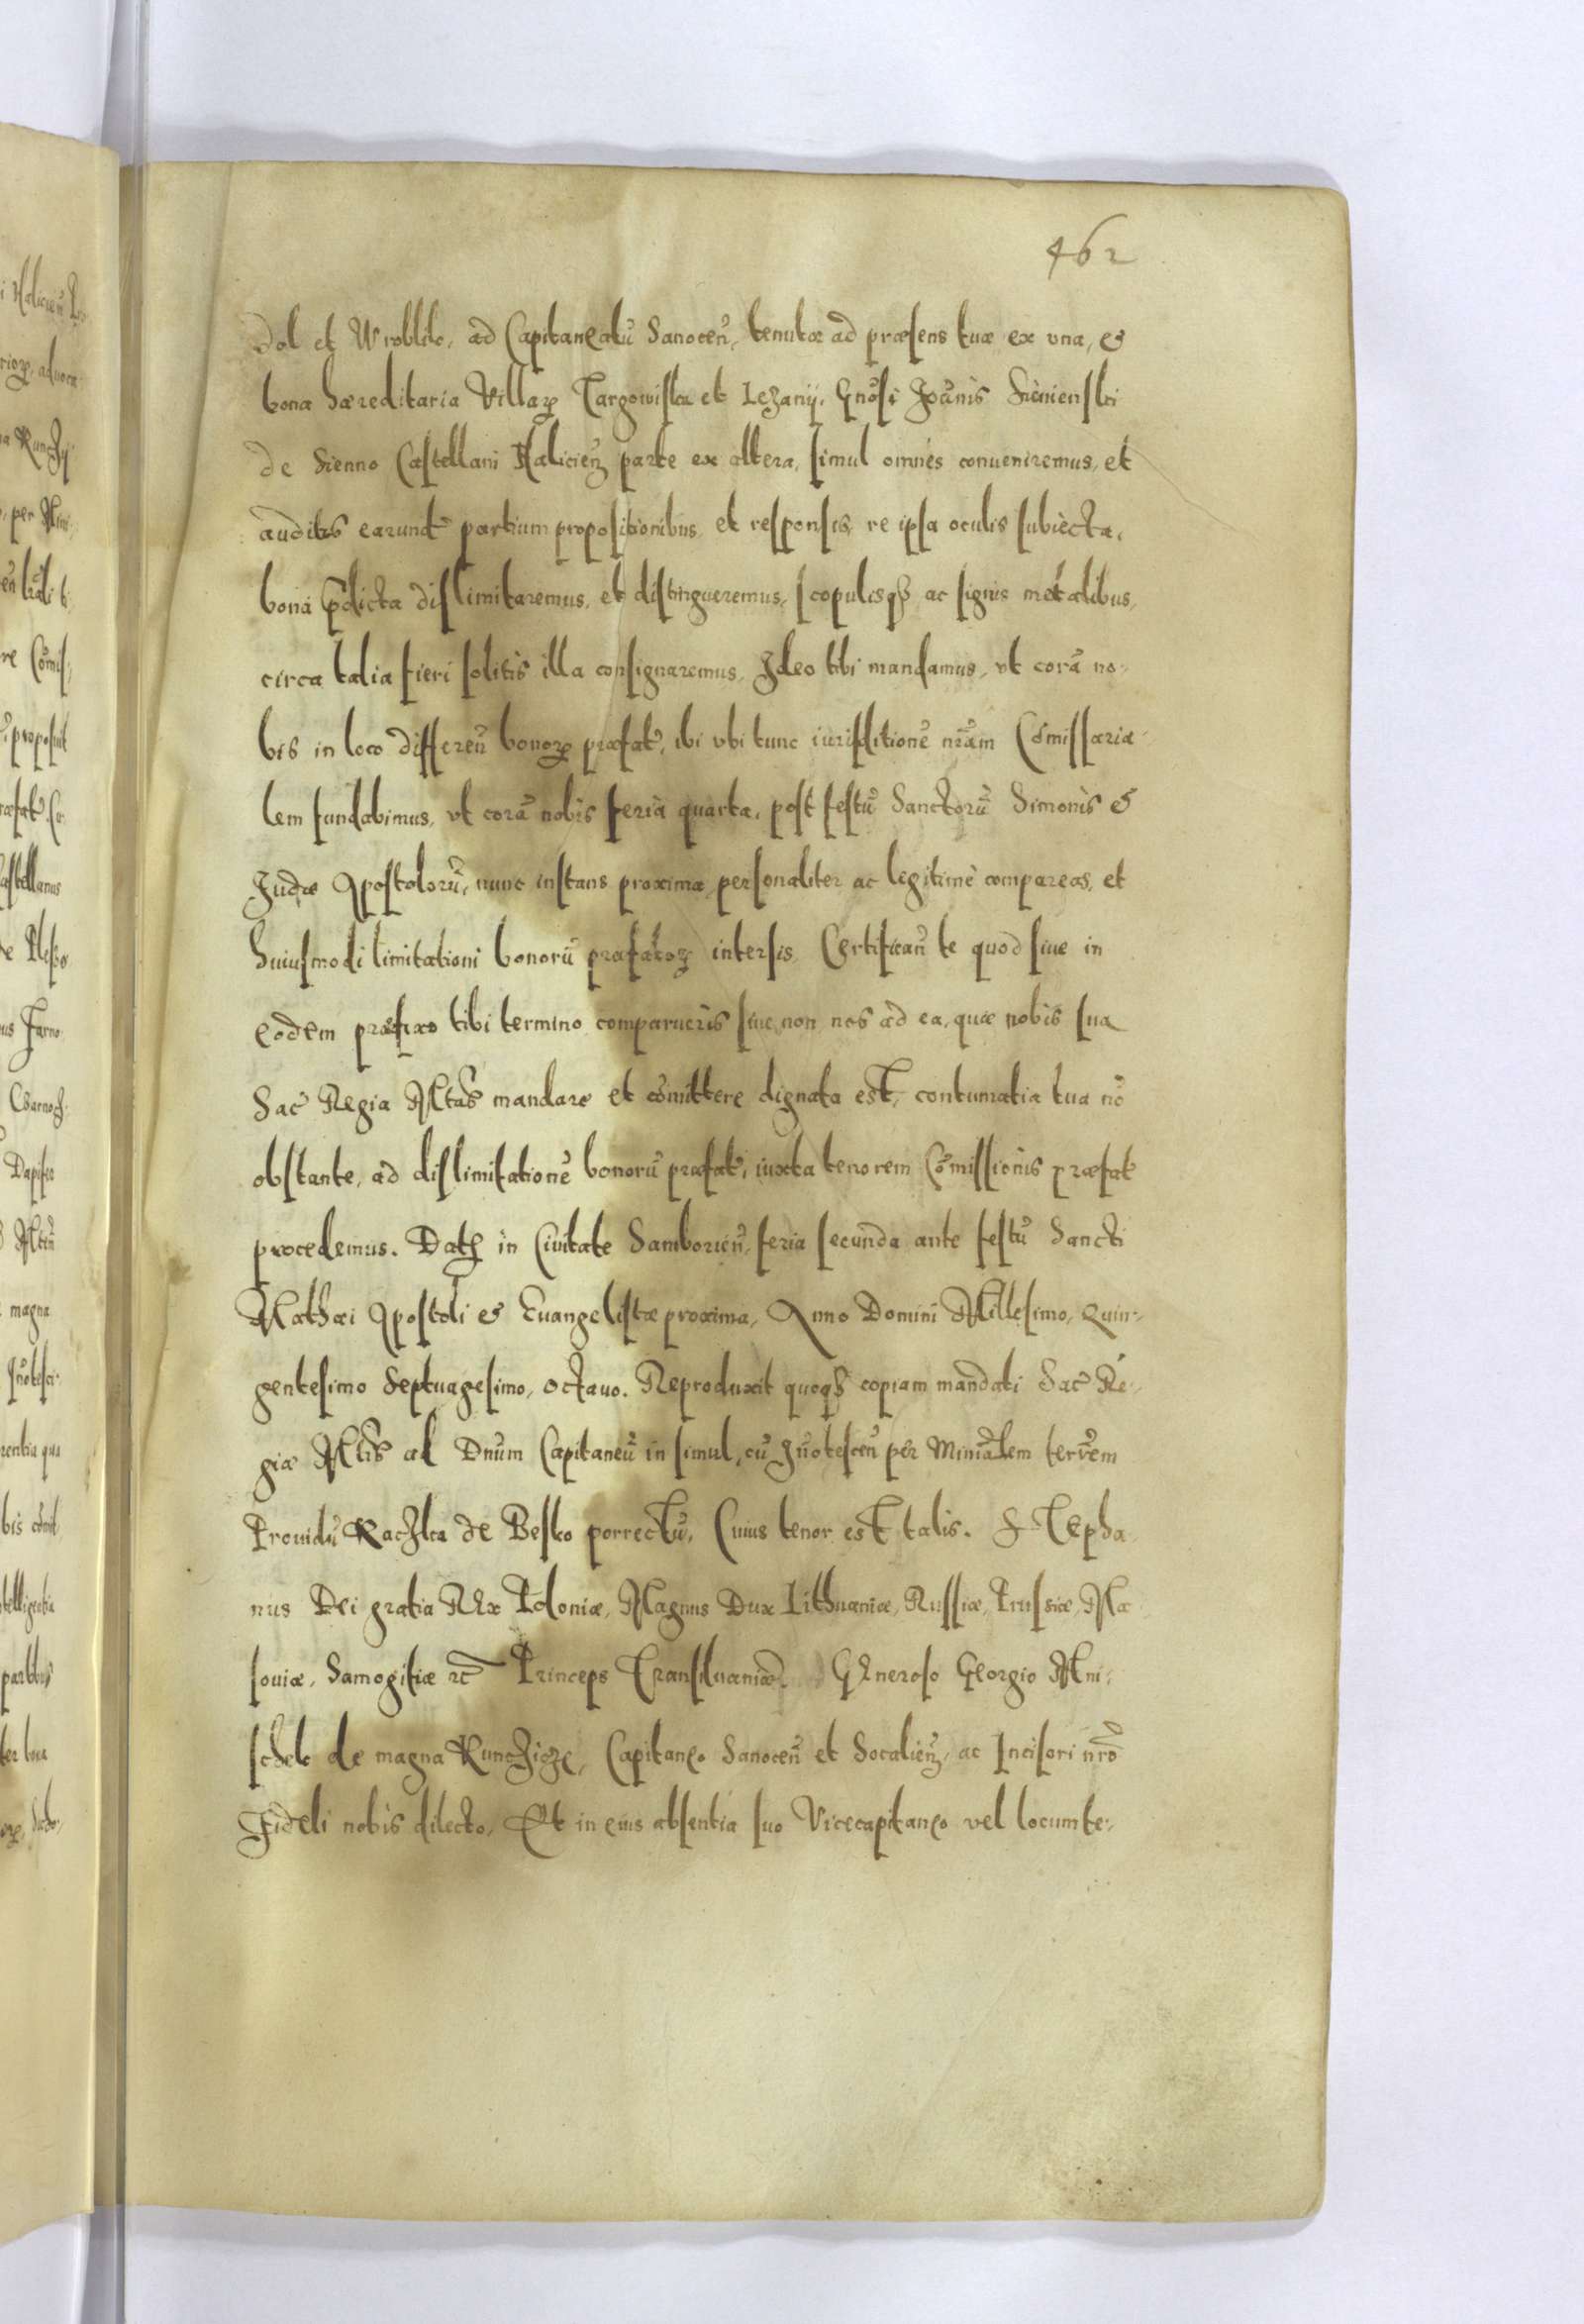 462
dol et Wroblik, ad Capitaneatũ Sanoceñ, tenutæ ad præsens tuæ ex vna, &
bona hæreditaria Villaꝝ Targowiska et Iezanÿ, Gnõsi Joãnis Sienienski
de Sienno Castellani Halicieñ parte ex altera, simul omnes conueniremus, et
auditis earund̃ partium propositionibus, et responsis, re ipsa oculis subiecta,
bona p̃dicta dislimitaremus, et distingueremus, scopulisqȝ ac signis metalibus,
circa talia fieri solitis illa consignaremus, Ideo tibi mandamus, vt corã no-
bis in loco differeñ bonoꝝ præfat̃, ibi vbi tunc iurisditionẽ nrãm Cõmissaria-
lem fundabimus, vt corã nobis feria quarta, post festũ Sanctorũ Simonis &
Judæ Apostolorũ, nunc instans proxima, personaliter ac legitimè compareas, et
huiusmodi limitationi bonorũ præfatoꝝ intersis, Certificañ te quod siue in
eodem præfixo tibi termino comparueris siue non, nos ad ea, quæ nobis sua
Sac̃ Regia Mtãs mandare et cõmittere dignata est, contumatia tua nõ
obstante, ad dislimitationẽ bonorũ præfat̃, iuxta tenorem Cõmissionis præfat̃
procedemus. Datȝ in Ciuitate Samborieñ, feria secunda ante festũ Sancti
Mathæi Apostoli & Euangelistæ proxima, Anno Domini Millesimo, Quin-
gentesimo Septuagesimo, octauo. Reproduxit quoqȝ copiam mandati Sac̃ Re-
giæ Mtis̃ ad Dnũm Capitaneũ in simul, cũ Jñotesceñ per Miniãlem terrẽm
Prouidũ Kaczka de Besko porrectũ, Cuius tenor est talis. Stepha
nus Dei gratia Rex Poloniæ, Magnus Dux Lithuaniæ, Russiæ, Prussiæ, Ma
souiæ, Samogitiæ ꝛc̃ Princeps Transiluaniæ. Generoso Georgio Mni-
schek de magna Kunczicze, Capitaneo Sanoceñ et Socalieñ, ac Incisori nrõ
Fideli nobis dilecto, Et in eius absentia suo Vicecapitaneo vel locumte-